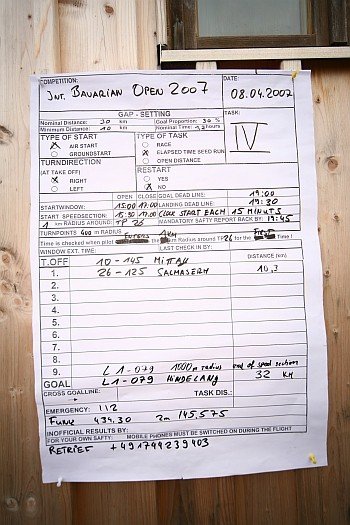 COMPETITION: DATE:
Int. Bavarian Open 2007 08.04.2007
GAP - SETTING TASK:
Nominal Distance: 30 km Goal Proportion: 30 %
Minimum Distance: 10 km Nominal Time: 1,5 hours
IV
TYPE OF START TYPE OF TASK
X AIR START RACE
GROUNDSTART X ELAPSED TIME SEED RUN
TURNDIRECTION OPEN DISTANCE
(AT TAKE OFF) RESTART
X RIGHT YES
LEFT X NO
OPEN CLOSE GOAL DEAD LINE: 19:00
STARTWINDOW: 15:00 17:00 LANDING DEAD LINE: 19:30
START SPEEDSECTION: 15:30 17:00 CLOCK START EACH 15 MINUTS
1 km RADIUS AROUND: TP 26 MANDATORY SAFTY REPORT BACK BY: 19:45
TURNPOINTS 400 m RADIUS
Time is checked when pilot enters the 1km Radius around TP 26 for the First Time !
WINDOW EXT. TIME: LAST CHECK IN BY:
T.OFF 10 - 145 Mittag DISTANCE (km)
1. 26 - 125 10,3
2.
3.
4.
5.
6.
7.
8.
9. L1-079 1000 m radius end of speed section
GOAL L1-079 HINDELANG 32 KM
CROSS GOALLINE: TASK DIS.:
EMERGENCY: 112
Funk 434.30 2m 145.575
INOFFICIAL RESULTS BY:
FOR YOUR OWN SAFTY: MOBILE PHONES MUST BE SWITCHED ON DURING THE FLIGHT
RETRIEF +491744239403